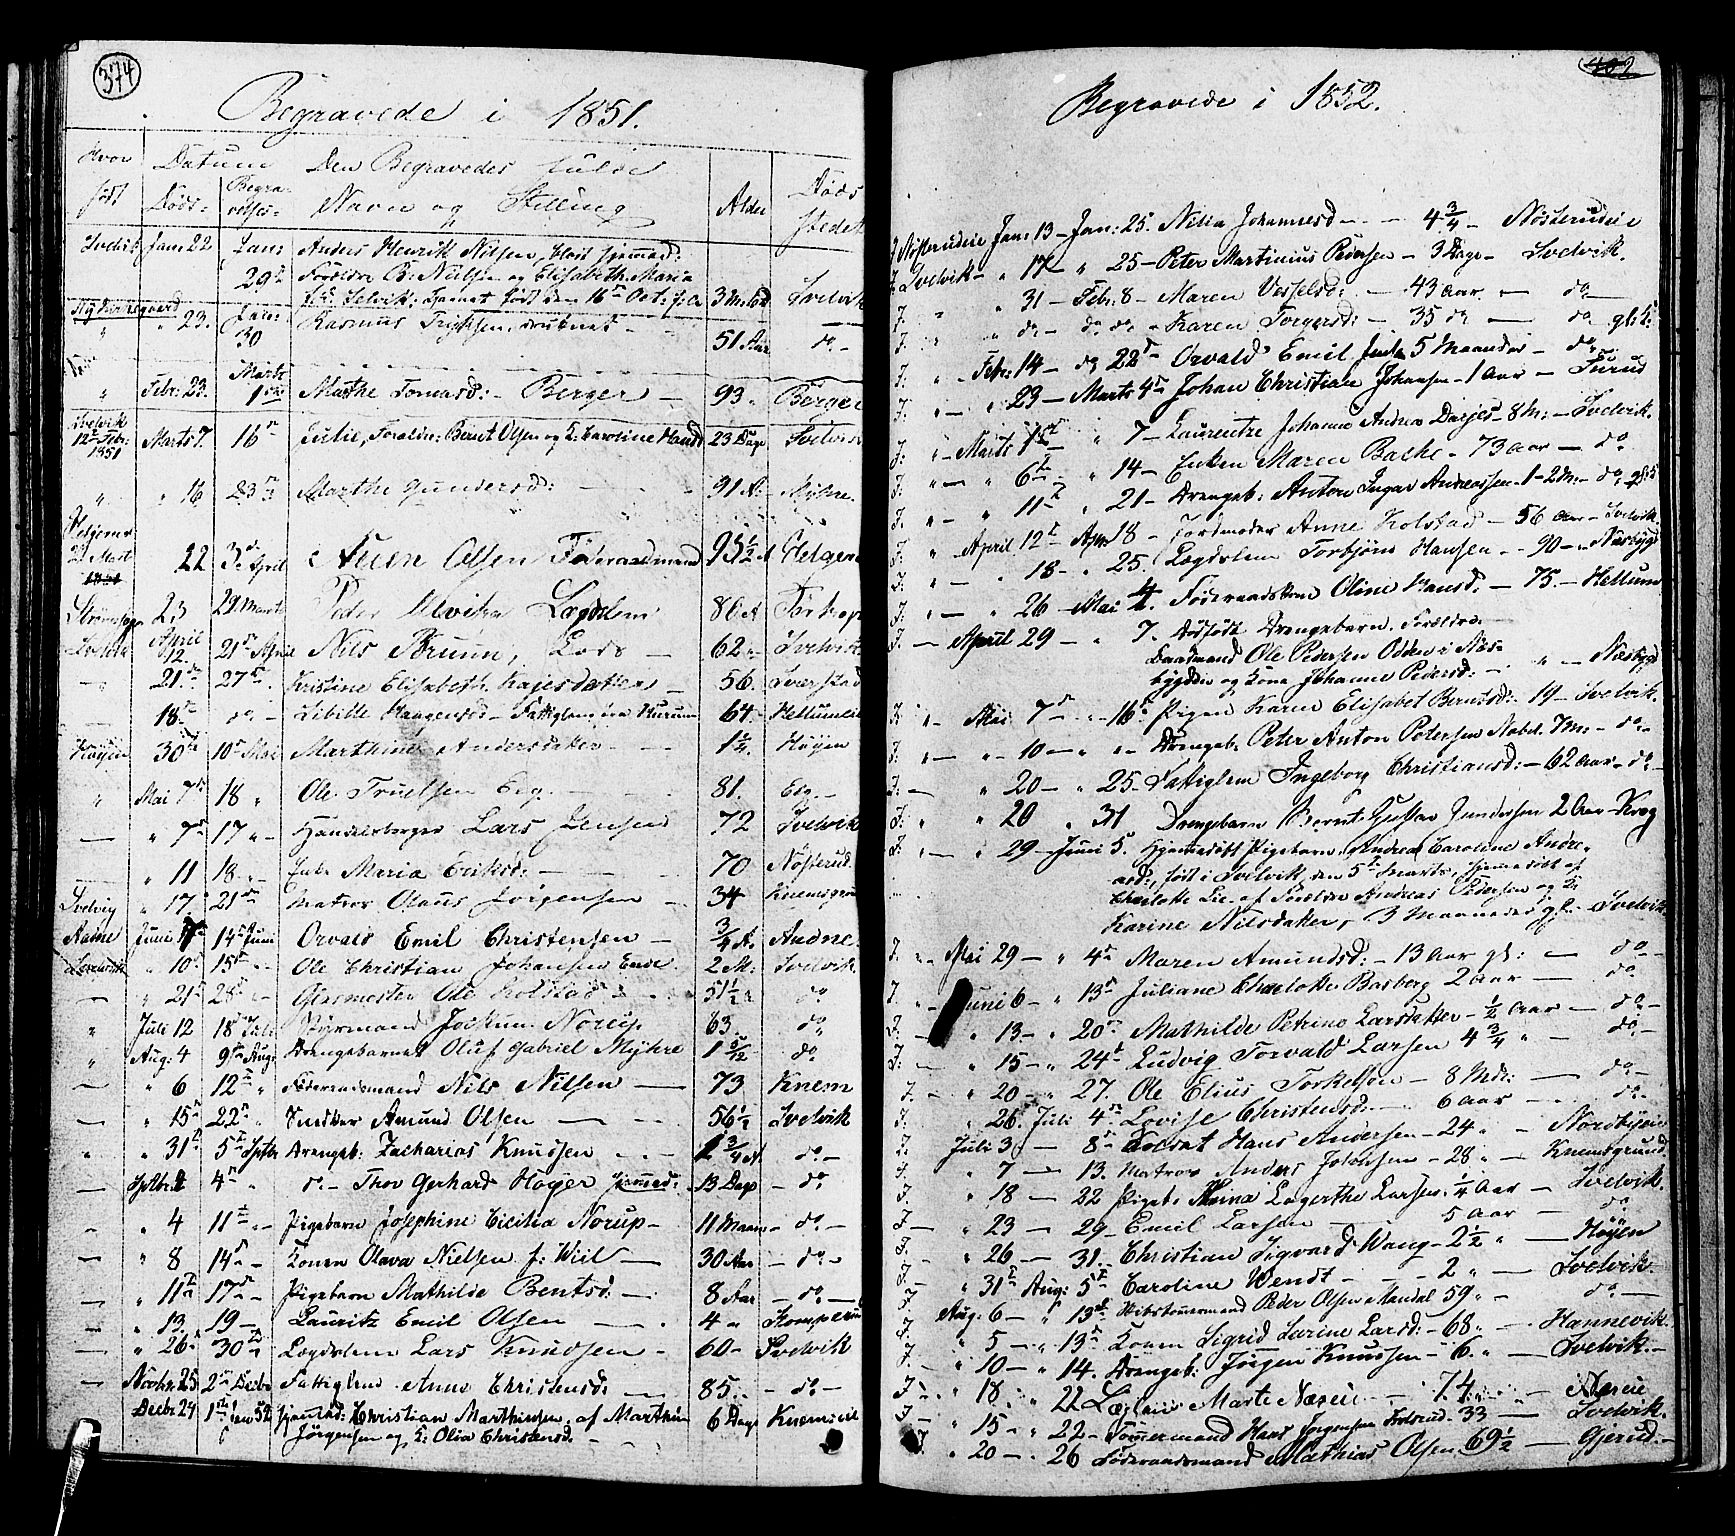 374
Begravede i 1851.
Hvor født | Datum | Den Begravedes fulde Navn og Stilling | Alder | Døds Stedet
Døds: | Begravelses:
Svelvik Jan: 22 Jan: 29 Anders Henrik Nilsen, hjemmed:
Forældre B. Nielsen og Elisabeth Maria
født den 16 Oct: 3 M. Svelvik
" 23. Jan: 30 Rasmus 51 Aar do
" Febr: 23. Marts 1 Marthe Tomasd: Berger 93 " Berger
Svelvik 12 Febr: 1851 Marts 7. 16 Julie, Foreldre: Bernt Olsen og K: Karoline Hansd 23 Dage Svelvik
" " 16 23 Marthe Gundersd: 91 A: Myhre
22 3 April Olsen Føderaadsmand 95 1/2
23 29. Marts Peder Lægdslem 86 A
April 12. 21 April Nils Bruun, Lods 62 " Svelvik
21 27 Kristine Elisabeth Kajesdatter 56. Sverstad
18 do Sibille Haagensd Fattiglem fra Hurum 64 Hellumeie
Høyen 30 10 Mai Marthine Andersdatter 1 1/4 Høyen
" Mai 7 18 " Ole Truelsen Eeg 81. Eeg
" 7 17 " Handelsborger Lars Jensen 72 Svelvik
" 11 18 " Enke Maria Eriksd: 70 Nøsterud
Svelvig " 17 21 Matros Olaus Jørgensen 34 Knemsgrund
Juni 14 Juni Orvald Emil Christensen 3/4 A.
" 10 15 " Ole Christian Johansen Enge 2 M: Svelvik
" 21 28 " Ole Kolstad 51 1/2 do
" Juli 12 18 Juli Jochum Norup 63. do
" Aug: 4 9 Aug: Drengebarnet Oluf Gabriel Myhre 1 5/12 do
" 6 12 " Føderaadsmand Nils Nilsen 73 Knem
" 15 22 Snedker Amund Olsen 56 1/2 Svelvik
" " 31 5 Sptbr Drengeb: Zacharias Knudsen 1 3/4 A. do
Sptbr: 4 " do Thor Gerhard Høyer hjemmed: 13 Dage do
" 4 11 " Pigebarn Josephine Cicilia Norup 11 Maan do
" 8 14 Konen Olava Nielsen f: Wiil 30 Aar do
" 11 17 " Pigebarn Mathilde Bentsd: 8 Aar do
" 13 19 Lauritz Emil Olsen 4 "
" 26 30 Lægdslem Lars Knudsen 60 Svelvik
Novbr: 25 2 Decbr Fattiglem Anne Christensd: 85. do
Decbr: 29 1 Jan 52 hjemmed: Christian Marthinsen, af Marthin
Jørgensen og K: Olia Christensd. 6 Dage Knemseie
402
Begravede i 1852.
Nøsterudeie Jan: 13 Jan: 25. Nilia Johannesd 4 3/4 Nøsterudeie
J. Svelvik " 17 " 25 Peter Martinius Pedersen 3 Dage Svelvik.
J: " 31 Febr: 8 Maren Vesselsd: 43 Aar do
J: " do do do Karen Torgersd: 35 do do
J: " Febr: 14 do 22 Orvald Emil 5 Maaneder do
J. " " 29 Marts 4 Johan Christian Johansen 1 Aar
J. " Marts 1 " 7 Laurentze Johanne Andrea 8 M: Svelvik.
J: " 6 " 14 Enken Maren Bache 73 Aar do
J. " 11 " 21 Drengeb: Anton Ingar Andreassen 1-2 M: do
J: " April 12 Apr 18 Jordmoder Anne Kolstad 56 Aar Svelvik
J: " " 18 " 25. Lægdslem Torbjørn Hansen 90 " Næsbygd
J: " " 26 Mai 4. Føderaadskone Oline Hansd: 75 Hellum
J April 29 " 7. Dødfødt Drengebarn. Forældre:
Baadsmand Ole Pedersen Odden i Næs-
bygden og Kone Johanne Pedersd: " Næsbygd
J. " Mai 7 16 Pigen Karen Elisabet Berntsd: 19 Svelvik.
J: " " 10 " " Drengeb: Peter Anton Petersen Nobel 7 M: do
J: " 20 " 25. Fattiglem Ingeborg Christiansd: 62 Aar do
J: " " 20 " 31 Drengebarn Bernt Gustav Gundersen 2 Aar Krog
J. " " 29 Juni 5. hjemmedøbt Pigebarn. Andrea Caroline Andre-
asd:, født i Svelvik den 5 Marts, hjemmedøbt af
Charlotte Lie. af Forældre Andreas Pedersen og K:
Karine Nilsdatter, 3 Maaneder gl. Svelvik
J. " Mai 29 " 4 Maren Amundsd: 13 Aar gl: do
J. " Juni 6 " 13 Juliane Charlotte Basberg 2 Aar do
J. " 13 " 20 Mathilde Petrine Larsdatter 1/2 Aar do
J: " 15 " 24 Ludvig Torvald Larsen 4 3/4 " do
J. " 20 " 27. Ole Elius Torkelsen 8 Mdr: do
J. " 26. Juli 4 Lovise Christensd: 6 Aar do
J. Juli 3 " 8 Soldat Hans Andersen 24 " Nordbyeie
J. " 7 13. Matros Anders Johansen 28 " Knemsgrund
J. " 18 22 Pigeb: Lagerthe Larsen 1/4 Aar Svelvik.
J. " 23 29 Emil Larsen 5 Aar do
J. " 26 31. Christian Sigvard Wang 2 1/2 " Høyen
J. " 31 Aug: 5 Caroline Wendt 2 " Svelvik
J. Aug: 6 " 13 Skibstømmermand Peder Olsen Mandal 59 " do
J. " 5 " 13 Konen Sigrid Sarine Larsd: 68 " Hannevik
J. " 10 " 14. Drengeb: Jørgen Knudsen 6 " Svelvik
J. " 18 22 Marte Næseie 74. " Næseie
J. " 15 22 Tømmermand Hans Jørgensen 33 Svelvik.
J " 20 " 26 Føderaadsmand Mathias Olsen 69 1/2 Gjerud